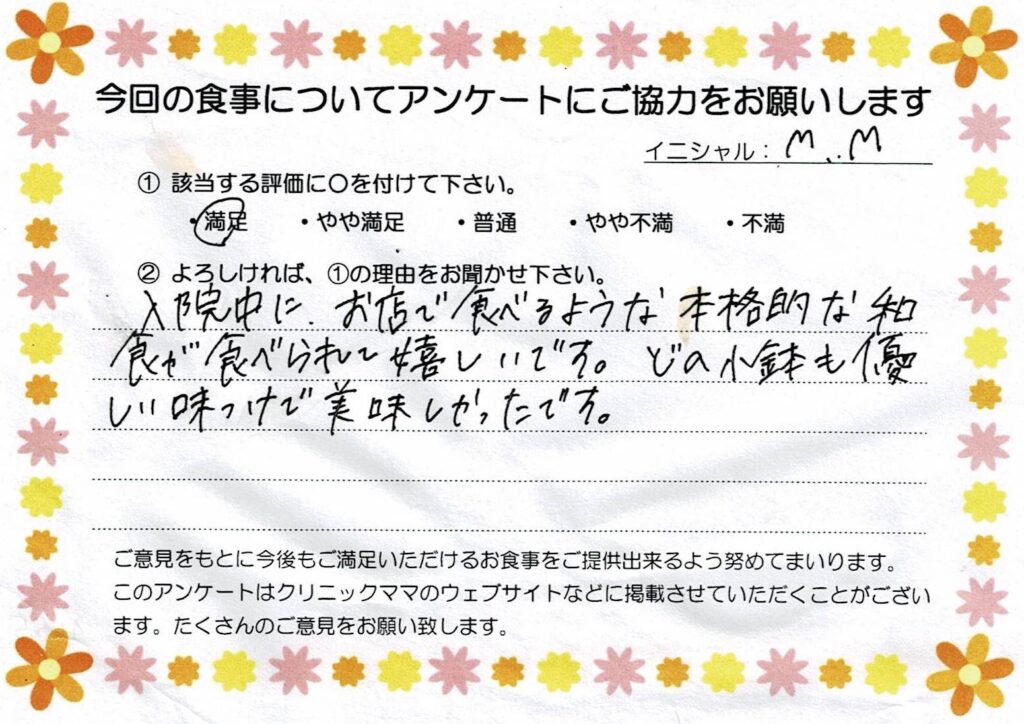 今回の食事についてアンケートにご協力をお願いします
イニシャル： M.M
① 該当する評価に〇を付けて下さい。
・満足 ・やや満足 ・普通 ・やや不満 ・不満
② よろしければ、①の理由をお聞かせ下さい。
入院中に、お店で食べるような本格的な和
食が食べられて嬉しいです。どの小鉢も優
しい味つけで美味しかったです。
ご意見をもとに今後もご満足いただけるお食事をご提供出来るよう努めてまいります。
このアンケートはクリニックママのウェブサイトなどに掲載させていただくことがござい
ます。たくさんのご意見をお願い致します。